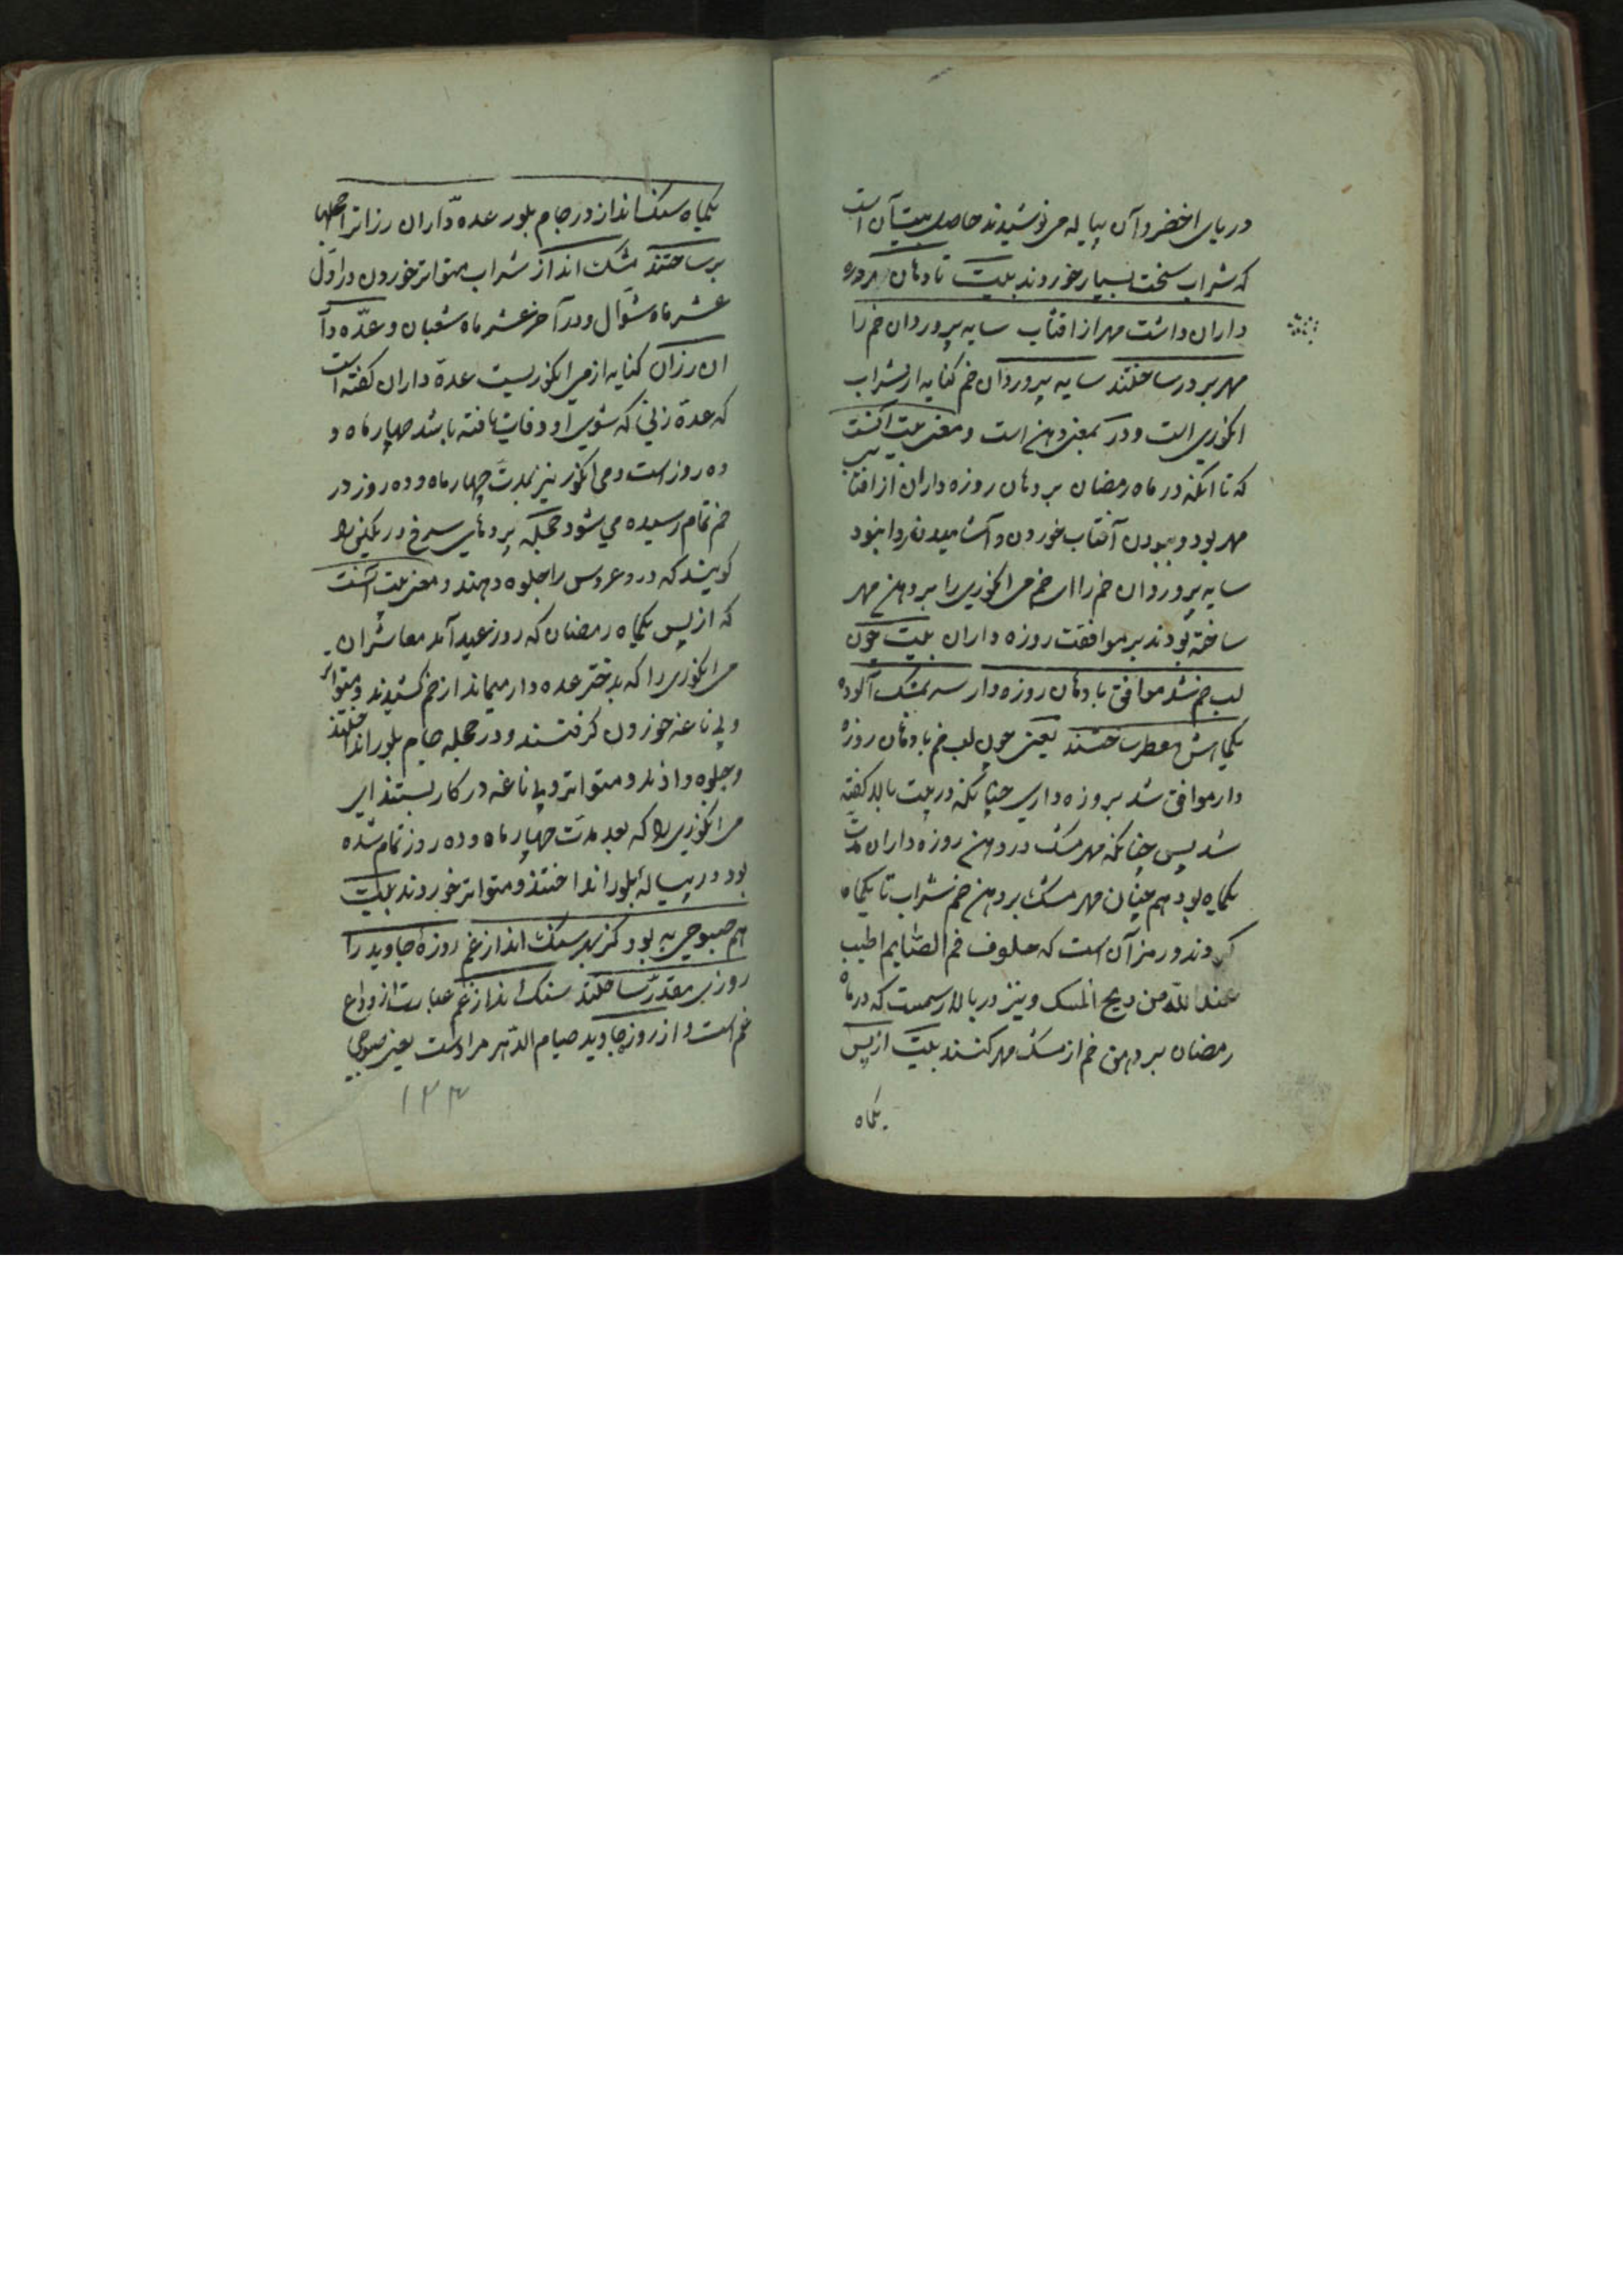 دریای اخضر و آن پیاله می نوشیدند حاصل بیت آن است
که شراب سخت بسیار خوردند بیت تا دهان روزه
داران داشت مهر از افتاب سایه پروردان خم را
مهر بر در ساختند سایه پروردان خم کنایه از شراب
انکوری است و در بمعنی دهن است و معنی بیت آنست
که تا انکه در ماه رمضان بر دهان روزه داران از افتاب
مهر بود و ببودن آفتاب خوردن و آشامیدن روا نبود
سایه پروردان خم را ای خم می انکوری را بر دهن مهر
ساخته بودند بر موافقت روزه داران بیت چون
لب خم شد موافق با دهان روزه دار سر بمشک آلوده
یکماهش معطر ساختند یعنی چون لب خم با دهان روزه
دار موافق شد بروزه داری چنانکه در بیت بالا کفته
شد پس چنانکه مهر مشک در دهن روزه داران مدت
یکماه بود هم چنان مهر مشک بر دهن خم شراب تا یکماه
کردند و رمز آن است که خلوف فم الصایم اطیب
عندالله من ریح المسک و نیز در بالا رسمیست که در ماه
رمضان بر دهن خم از مشک مهر کنند بیت از پس
یکماه
یکماه سنک انداز در جام بلور عده داران رزانرا
برساختند سنک انداز شراب متواتر خوردن در اول
عشر ماه شوال و در آخر عشر ماه شعبان و عده دا
ان رزان کنایه از می انکوریست عده داران کفته است
که عده زنی که شوی او وفات یافته باشد چهار ماه و
ده روز است و می انکور نیز بمدت چهار ماه و ده روز در
خم تمام رسیده می شود حجله پردهای سرخ و رنکین را
کویند که در و عروس را جلوه دهند و معنی بیت آنست
که از پس یکماه رمضان که روز عید آمد معاشران
می انکوری را که بدختر عده دار میماند از خم کشیدند و متواتر
و بی ناغه خوردن کرفتند و در حجله جام بلور انداختند
و جلوه دادند و متواتر و بی ناغه در کار بستند ای
می انکوری را که بعد مدت چهار ماه و ده روز تمام شده
بود در پیاله بلور انداختند و متواتر خوردند بیت
هم صبوحی به بود کز بهر سنک انداز غم روزه جاوید را
روزی مقدر ساختند سنک انداز غم عبارت از وداع
غم است و از روزه جاوید صیام الدهر مراد است یعنی صبوحی
۱۲۳